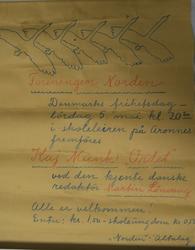 Foreningen Norden
Danmarks frihetsdag -
lördag 5 mai kl. 20.00
i skoleleiren på Aronnes
fremföres
Kaj Munk: "Ordet"
ved den kjente danske
redaktör Martin
Alle er velkommen!
Entre: kr. 1,50 - skoleungdom kr. 0,50
"Norden" - Altalag